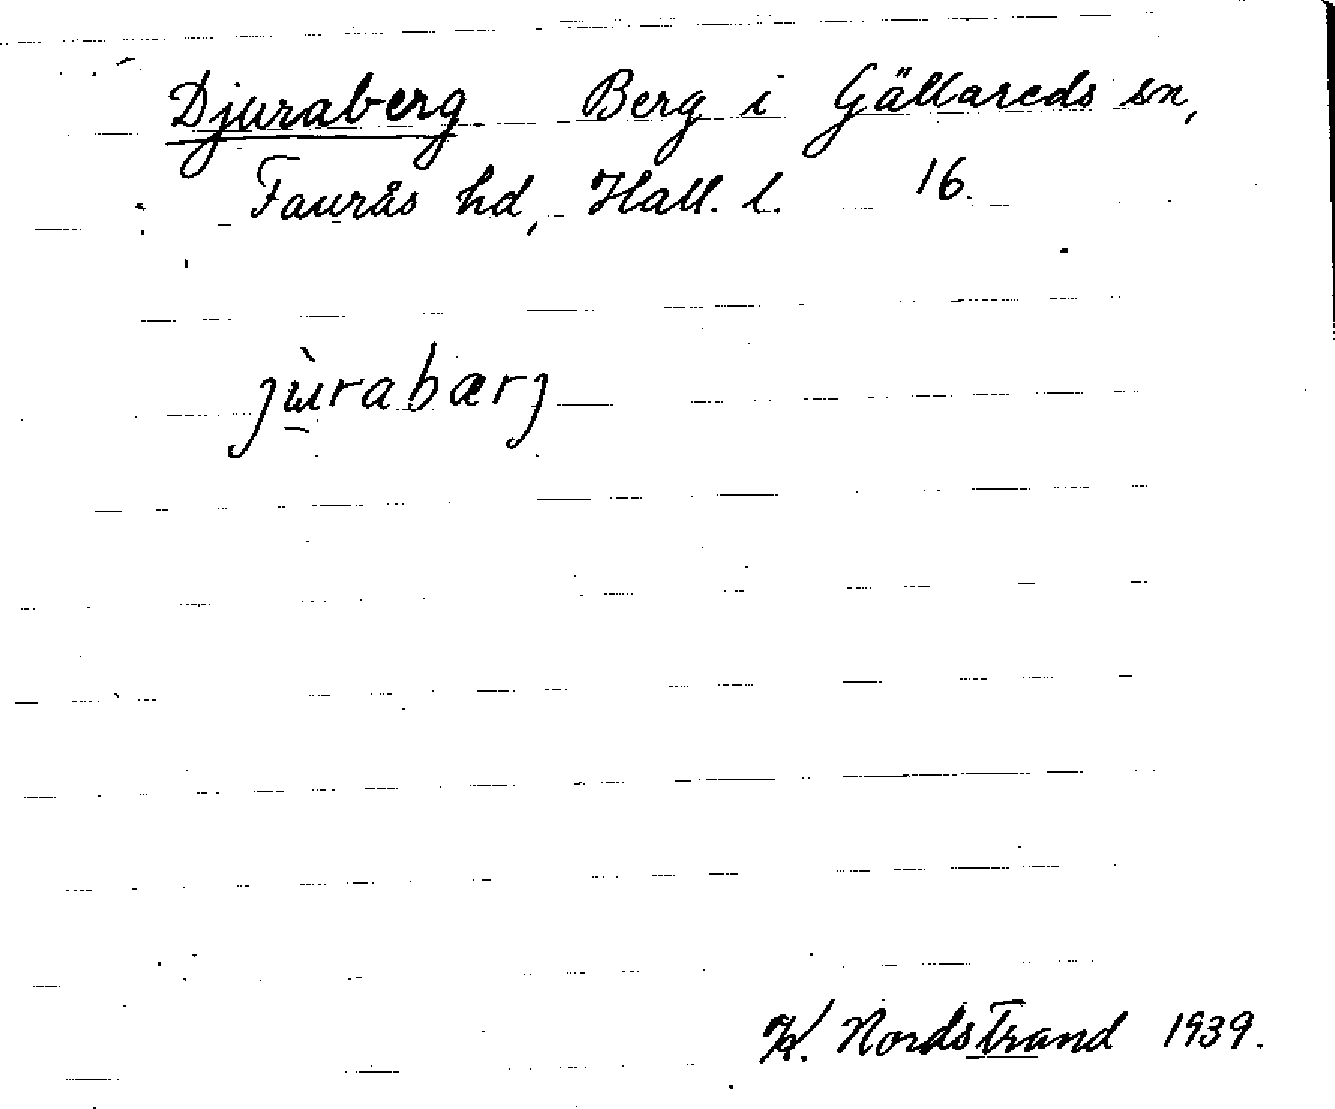 Djuraberg Berg i Gällareds sn,
Faurås hd, Hall. l. 16.
jùrabærj
K. Nordstrand 1939.